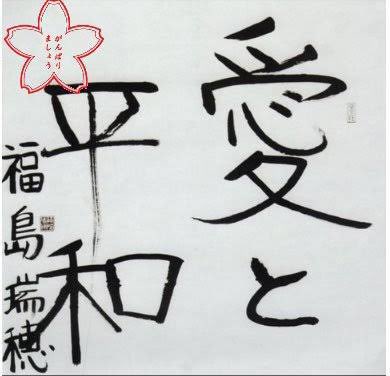 愛と
平和
福島瑞穂
がんばり
ましょう